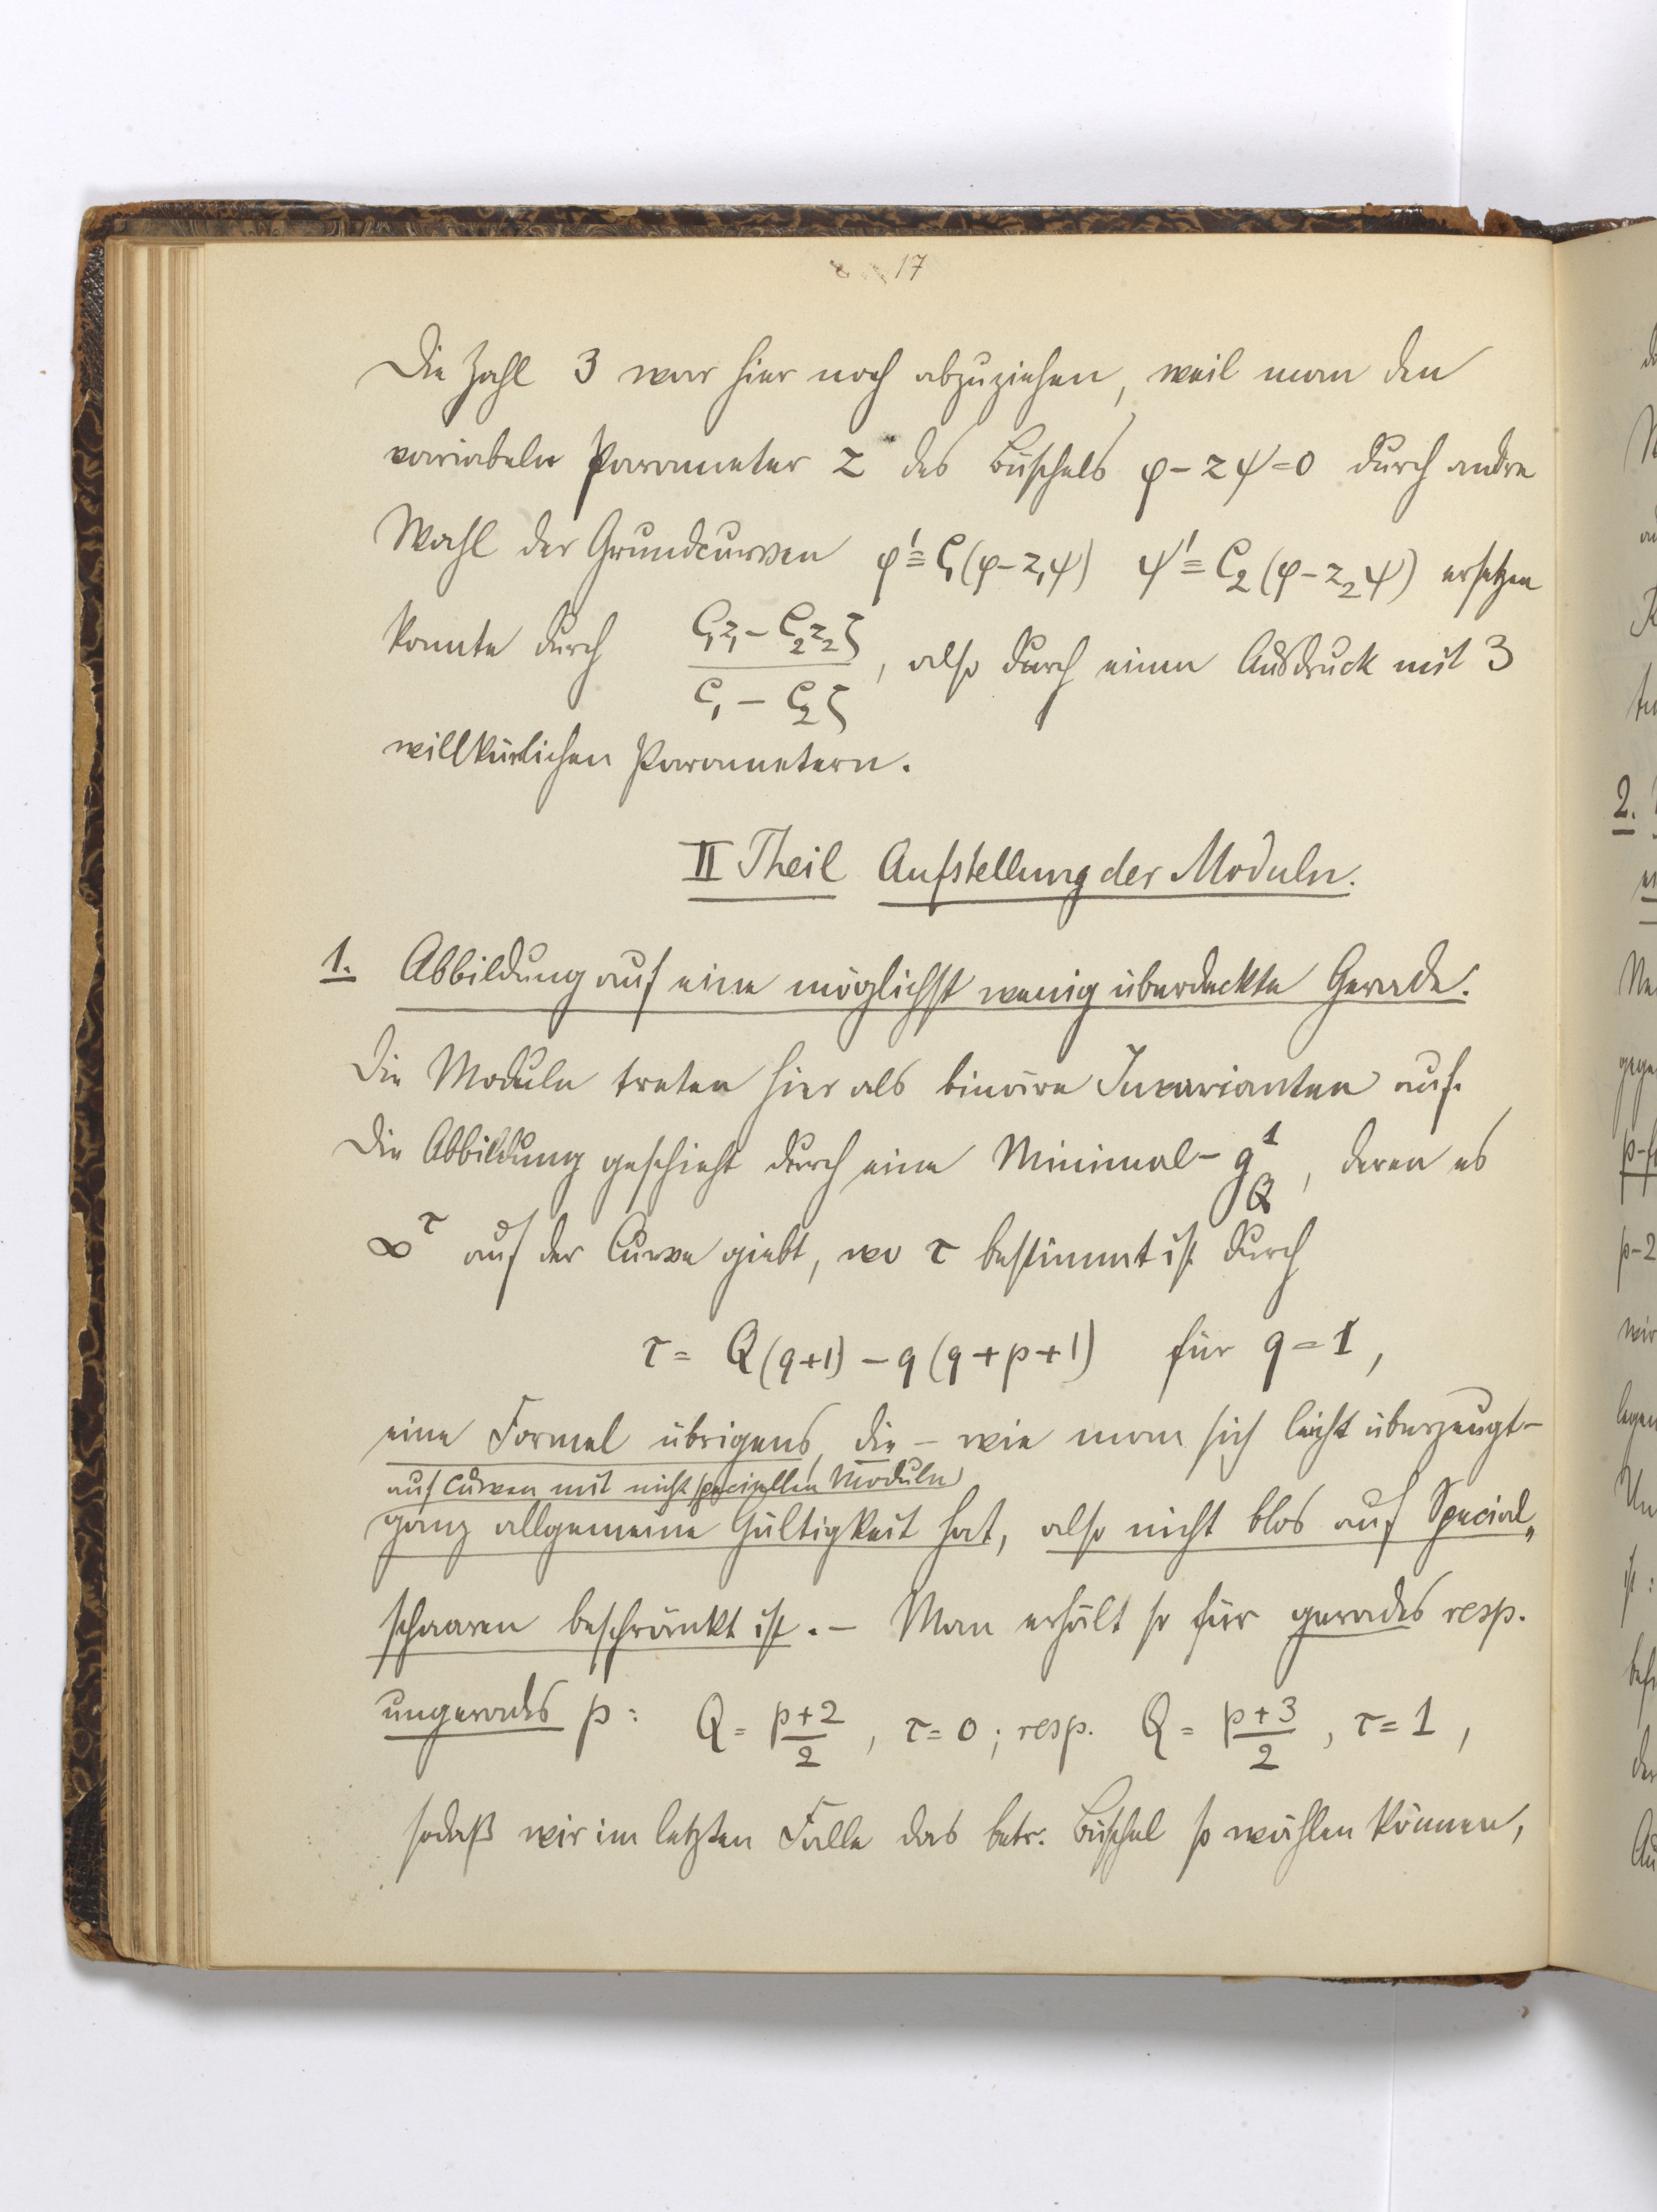 17
Die Zahl 3 war hier noch abzuziehen, weil man den
variabeln Parameter z des Büschels φ - zψ = 0 durch andre
Wahl der Grundcurven φ' ≡ C₁(φ - z₁ψ) ψ' ≡ C₂(φ - z₂ψ) ersetzen
konnte durch (C₁z₁ - C₂z₂ζ)/(C₁ - C₂ζ), also durch einen Ausdruck mit 3
willkürlichen Parametern.
II Theil Aufstellung der Moduln.
1. Abbildung auf eine möglichst wenig überdeckte Gerade.
Die Moduln treten hier als binäre Invarianten auf.
Die Abbildung geschieht durch eine Minimal- g^1_Q, deren es
∞^τ auf der Curve giebt, wo τ bestimmt ist durch
τ = Q(q+1) - q(q+p+1) für q = 1,
eine Formel übrigens, die - wie man sich leicht überzeugt -
auf Curven mit nicht speciellen Moduln
ganz allgemeine Gültigkeit hat, also nicht blos auf Special„
schaaren beschränkt ist. - Man erhält so für gerades resp.
ungerades p: Q = (p+2)/2, τ = 0; resp. Q = (p+3)/2, τ = 1,
sodaß wir im letzten Falle das betr. Büschel so wählen können,
2.
p-2
wir